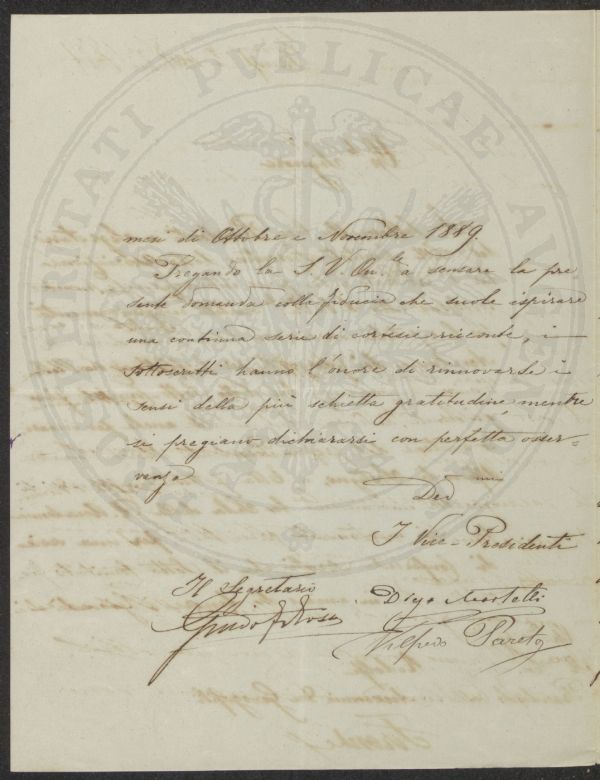 POSTERITATI PUBLICAE
mesi di Ottobre e Novembre 1889.
Pregando la S. V. On.le a scusare la pre
sente domanda colla fiducia che suole ispirare
una continua serie di cortesie ricevute, i
sottoscritti hanno l'onore di rinnovarle i
sensi della più schietta gratitudine, mentre
si pregiano dichiararsi con perfetta osser-
vanza
Dev mi
I Vice-Presidenti
Il Segretario
Diego Martelli
Guido
Vilfredo Pareto